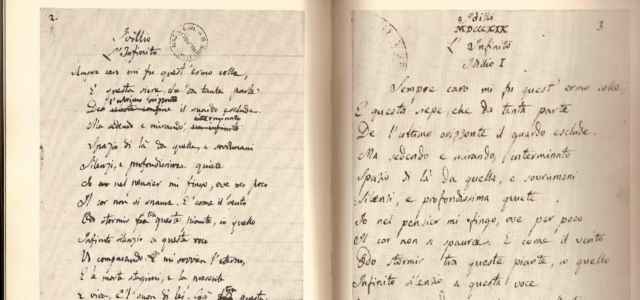 2.
Idillio
L'Infinito
Sempre caro mi fu quest'ermo colle,
E questa siepe, che da tanta parte
l'ultimo orizzonte
De il guardo esclude.
interminato
Ma sedendo e mirando,
Spazio di là da quella, e sovrumani
Silenzi, e profondissima quiete
Io nel pensier mi fingo, ove per poco
Il cor non si spaura. E come il vento
Odo stormir tra queste piante, io quello
Infinito silenzio a questa voce
Vo comparando. E mi sovvien l'eterno,
E le morte stagioni, e la presente
E viva, e 'l suon di lei. Così questa
3
Idillio
MDCCCXIX
L'Infinito
Idillio I
Sempre caro mi fu quest'ermo colle,
E questa siepe, che da tanta parte
De l'ultimo orizzonte il guardo esclude.
Ma sedendo e mirando, interminato
Spazio di là da quella, e sovrumani
Silenzi, e profondissima quiete
Io nel pensier mi fingo, ove per poco
Il cor non si spaura. E come il vento
Odo stormir tra queste piante, io quello
Infinito silenzio a questa voce